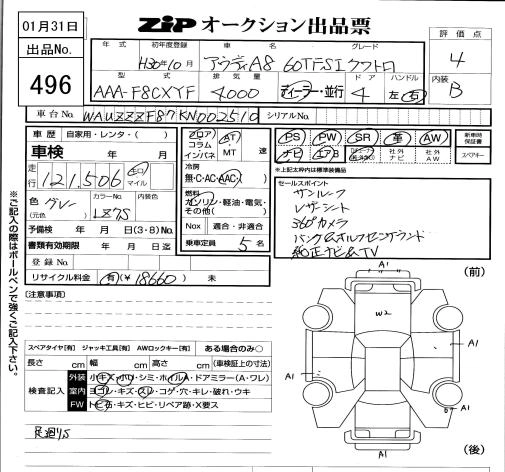 01月31日
出品No.
496
ZIP オークション出品票
評価点
4
内装
B
年式 初年度登録 車名 グレード
H30年10月 アウディA8 60TFSIクワトロ
型式 排気量 ドア ハンドル
AAA-F8CXYF 4,000 ディーラー・並行 4 左・右
車台No. WAUZZZF87KN002510 シリアルNo.
車歴 自家用・レンタ・( )
車検 年 月
走行 121,506 キロ マイル
色 グレー (元色) カラーNo. LZ7S 内装色
予備検 年 月 日(3・8)No.
書類有効期限 年 月 日迄
登録No.
リサイクル料金 有(¥18660) 未
フロア コラム インパネ AT・MT 速
冷房
無・C・AC・AAC
燃料
ガソリン・軽油・電気・その他( )
Nox 適合・非適合
乗車定員 5名
PS PW SR 革 AW 新車時保証書
ナビ エアB 社外ナビ 社外AW スペアキー
*上記太枠内は標準装備品
セールスポイント
サンルーフ
レザーシート
360°カメラ
バング&オルフセンサウンド
純正ナビ&TV
[注意事項]
スペアタイヤ[有] ジャッキ工具[有] AWロックキー[有] ある場合のみ○
長さ cm 幅 cm 高さ cm (車検証上の寸法)
検査記入
外装 小キズ・小凹・シミ・ホイルA・ドアミラー(A・ワレ)
室内 ヨゴレ・キズ・スレ・コゲ・穴・キレ・破れ・ウキ
FW トビ石・キズ・ヒビ・リペア跡・X要ス
足廻りS
(前)
A1
W2
A1
A1
A1
A1
(後)
※ご記入の際はボールペンで強くご記入下さい。